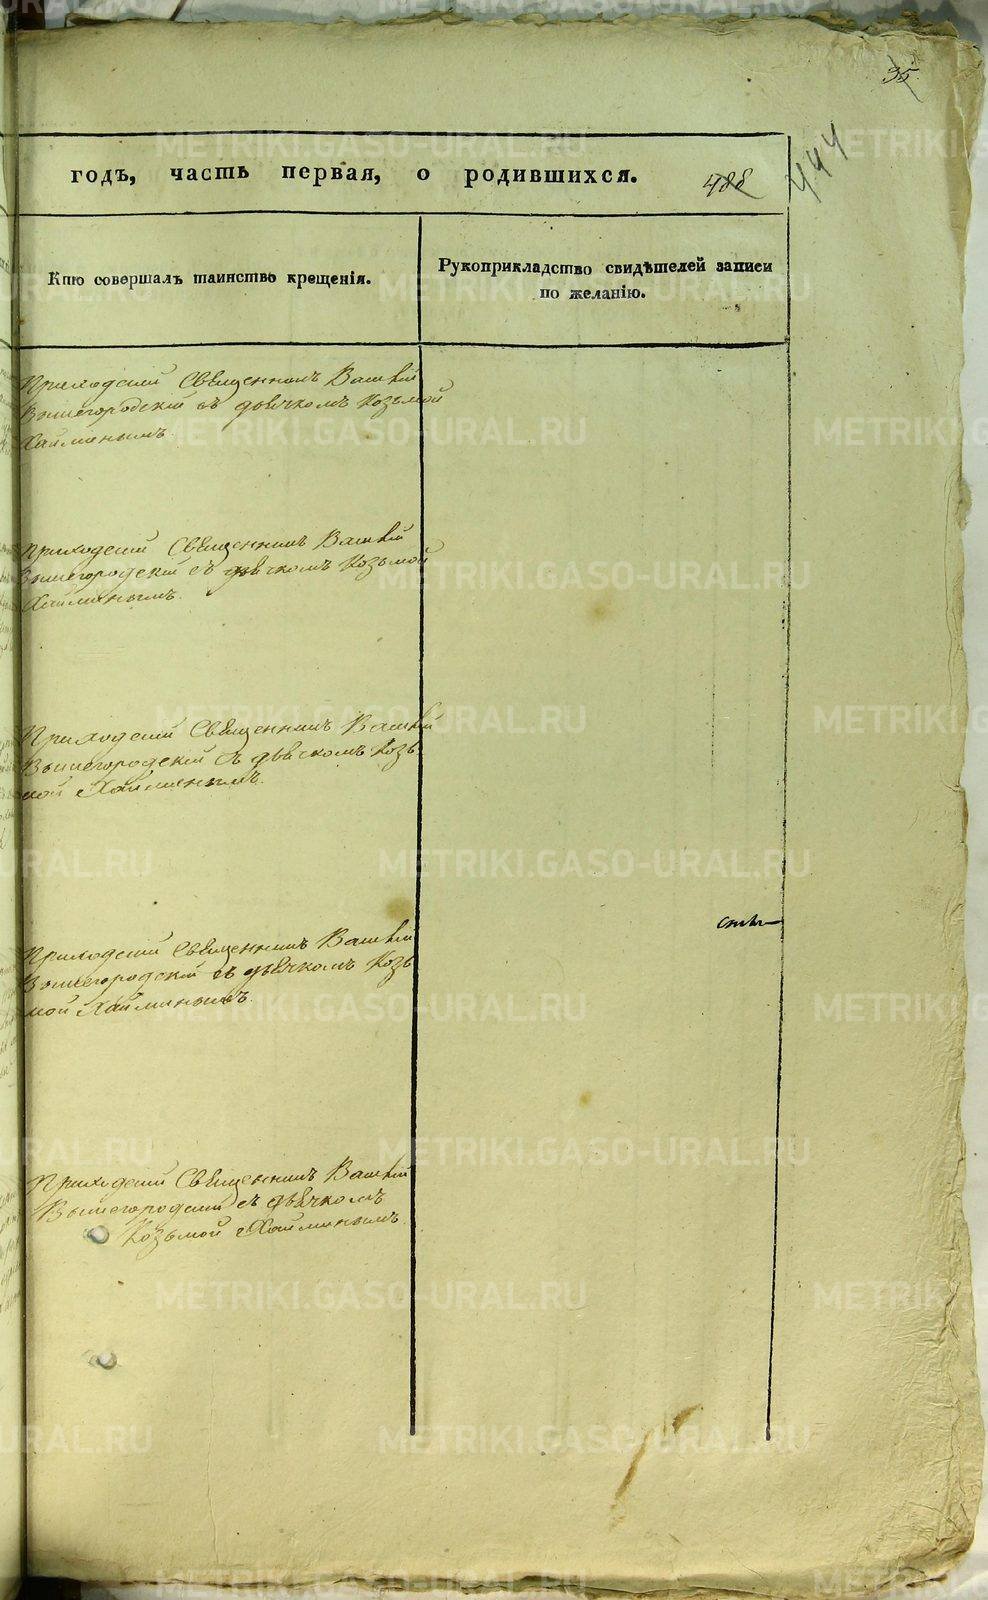 35
444
годъ, часть первая, о родившихся.
488
Кто совершалъ таинство крещенія.
Рукоприкладство свидѣтелей записи
по желанію.
Приходскій Священникъ Василій
Вышегородскій съ дьячкомъ Козьмой
Хайминымъ.
Приходскій Священникъ Василій
Вышегородскій съ дьячкомъ Козьмой
Хайминымъ.
Приходскій Священникъ Василій
Вышегородскій съ дьячкомъ Козь
мой Хайминымъ.
Приходскій Священникъ Василій
Вышегородскій съ дьячкомъ Козь
мой Хайминымъ.
Приходскій Священникъ Василій
Вышегородскій съ дьячкомъ
Козьмой Хайминымъ.
METRIKI.GASO-URAL.RU